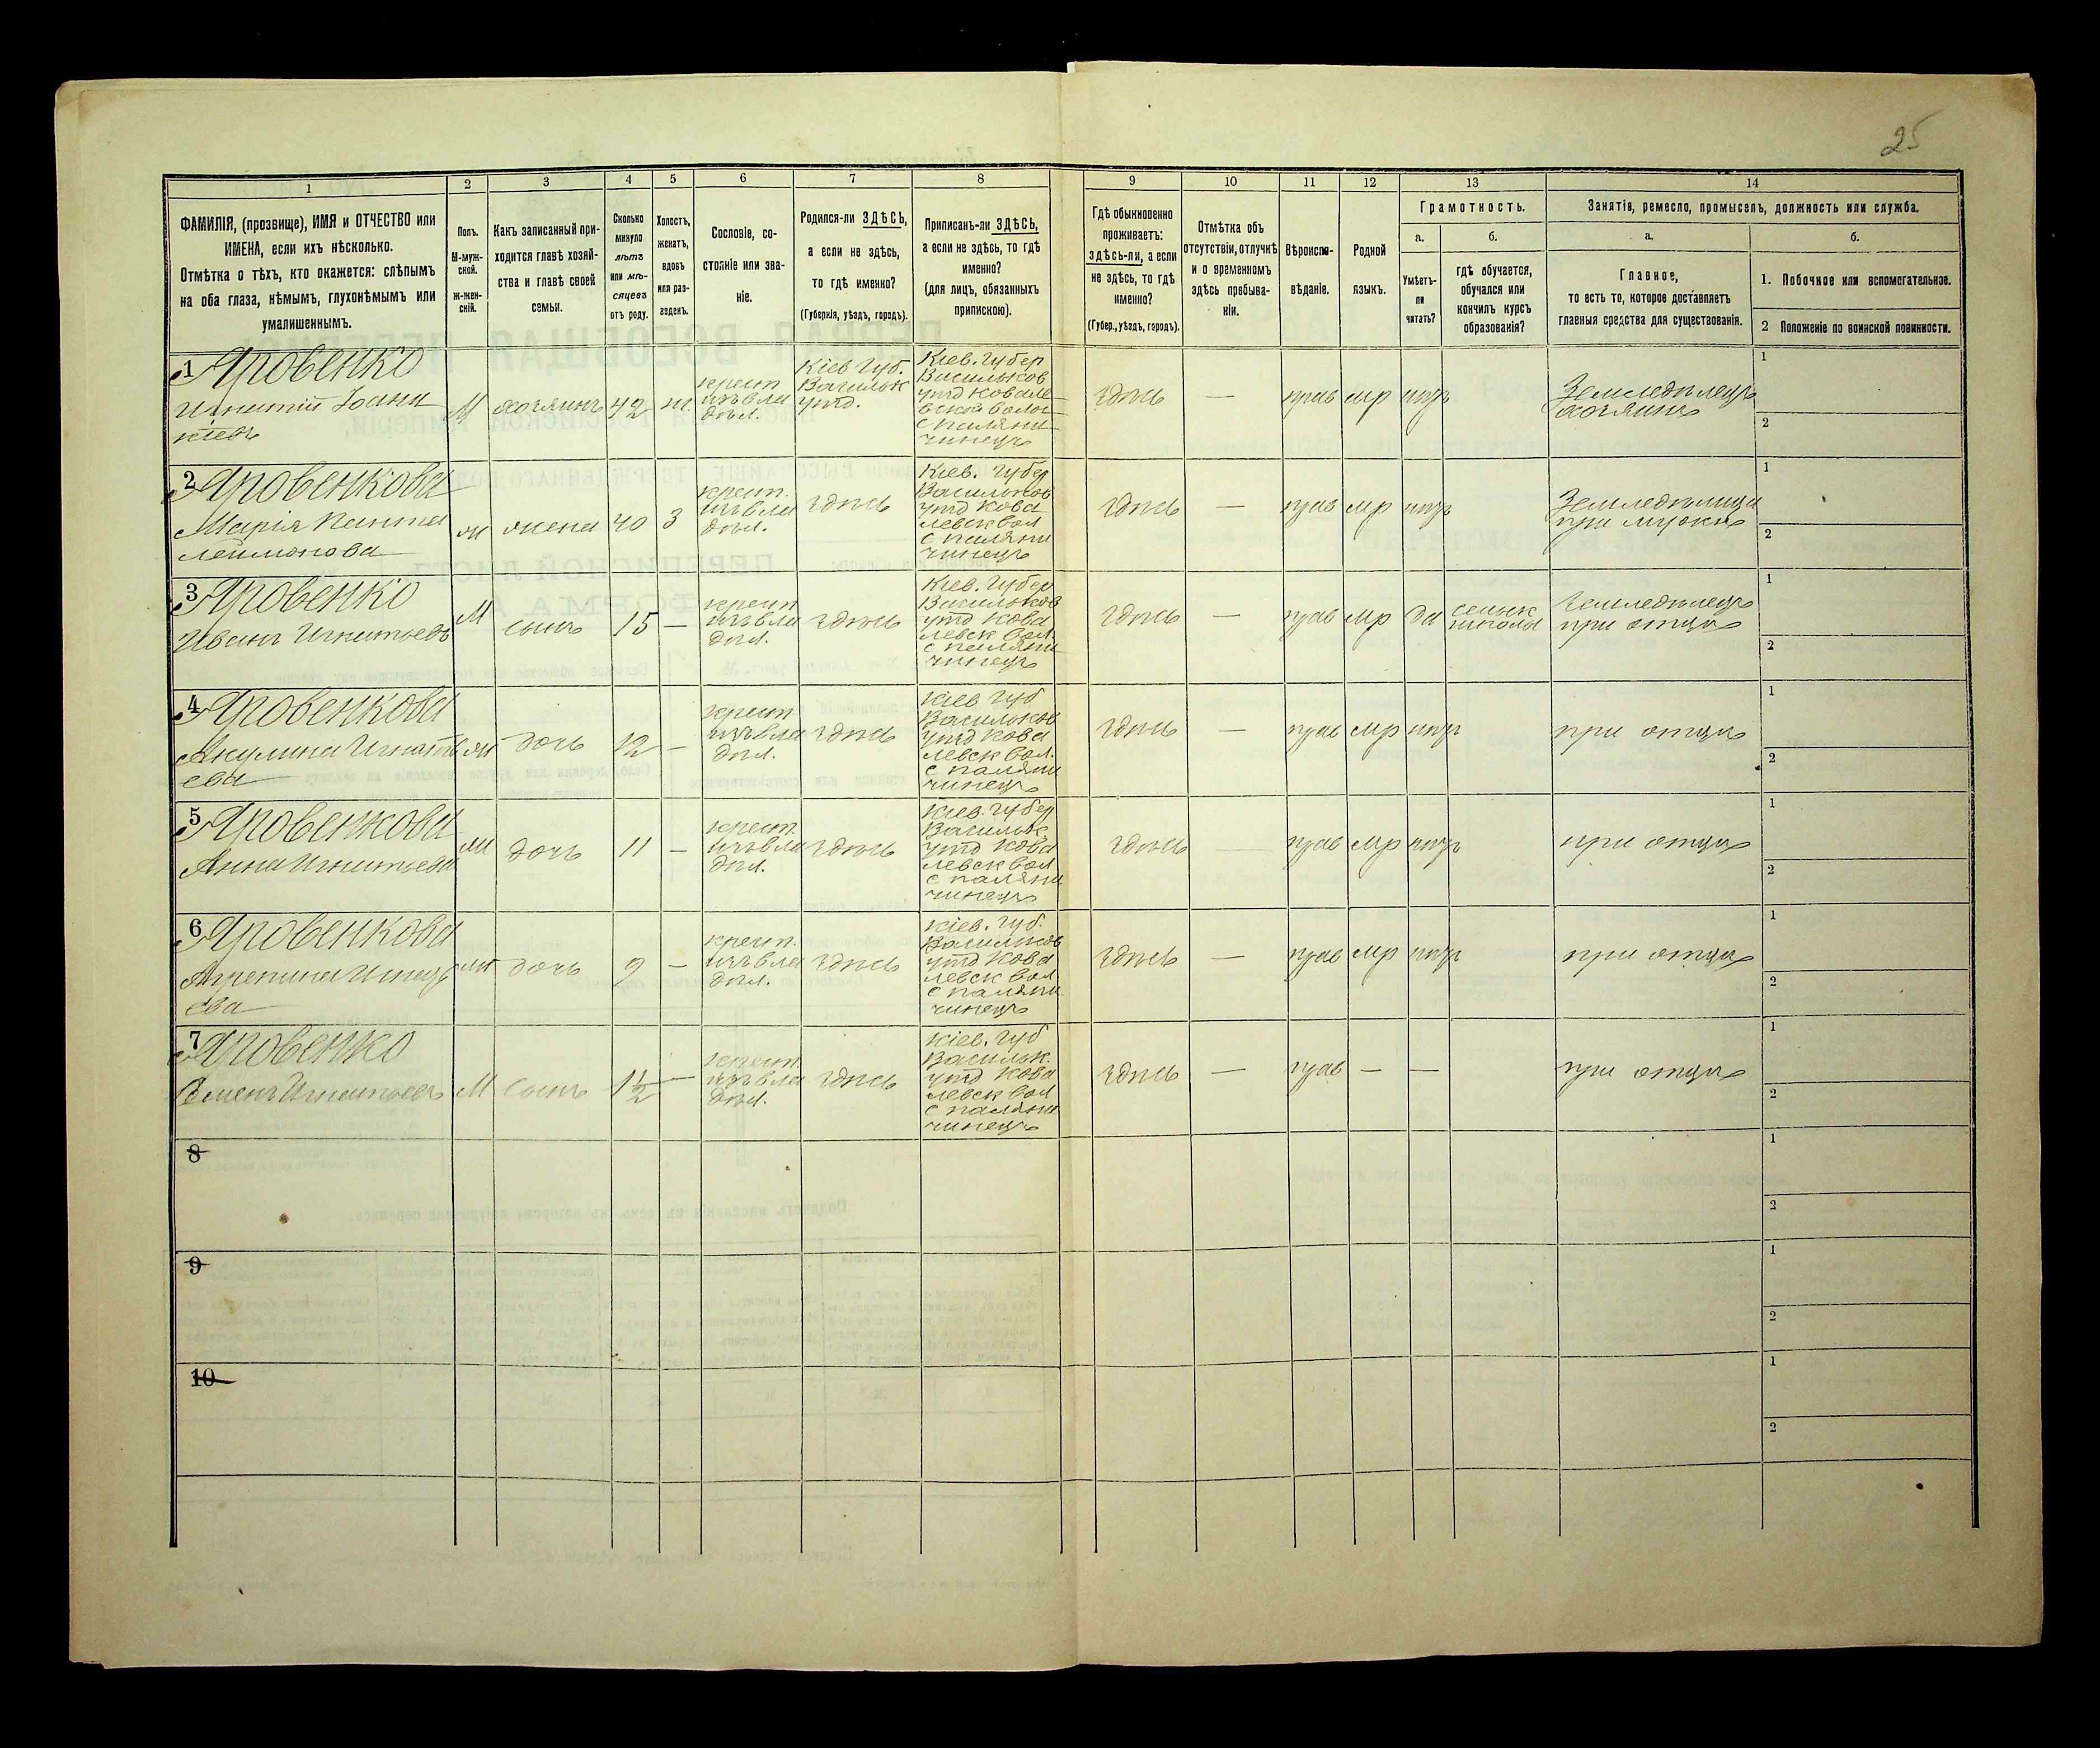 25
1 2 3 4 5 6 7 8 9 10 11 12 13 14
ФАМИЛІЯ, (прозвище), ИМЯ и ОТЧЕСТВО или
ИМЕНА, если ихъ нѣсколько.
Отмѣтка о тѣхъ, кто окажется: слѣпымъ
на оба глаза, нѣмымъ, глухонѣмымъ или
умалишеннымъ.
Полъ.
М-муж-
ской.
ж-жен-
скій.
Какъ записанный при-
ходится главѣ хозяй-
ства и главѣ своей
семьи.
Сколько
минуло
лѣтъ
или мѣ-
сяцевъ
отъ роду.
Холостъ,
женатъ,
вдовъ
или раз-
веденъ.
Сословіе, со-
стояніе или зва-
ніе.
Родился-ли ЗДѢСЬ,
а если не здѣсь,
то гдѣ именно?
(Губернія, уѣздъ, городъ).
Приписанъ-ли ЗДѢСЬ,
а если не здѣсь, то гдѣ
именно?
(для лицъ, обязанныхъ
припискою).
Гдѣ обыкновенно
проживаетъ:
здѣсь-ли, а если
не здѣсь, то гдѣ
именно?
(Губер., уѣздъ, городъ).
Отмѣтка объ
отсутствіи, отлучкѣ
и о временномъ
здѣсь пребыва-
ніи.
Вѣроиспо-
вѣданіе.
Родной
языкъ.
Грамотность.
а.
Умѣетъ-
ли
читать?
б.
гдѣ обучается,
обучался или
кончилъ курсъ
образованія?
Занятія, ремесло, промыселъ, должность или служба.
а.
Главное,
то есть то, которое доставляетъ
главныя средства для существованія.
б.
1. Побочное или вспомогательное.
2 Положеніе по воинской повинности.
1 Яровенко
Игнатій Іоани
кіевъ
М
хозяинъ
42
ж.
крест
изъ вла
дѣл.
Кіев Губ.
Васильк
уѣзд.
Кіев. Губер
Васильков
уѣзд Ковале-
вской волос
с паляни-
чинецъ
здѣсь
—
прав
мр
нѣтъ
Земледѣлецъ
хозяинъ
1
2
2 Яровенкова
Марія Панте
леимонова
ж
жена
40
З
крест.
изъ вла
дѣл.
здѣсь
Кіев. Губер
Васильков
уѣзд Кова
левск вол
с паляни
чинецъ
здѣсь
—
прав
мр
нѣтъ
Земледѣлица
при мужѣ
1
2
3 Яровенко
Иванъ Игнатьевъ
М
сынъ
15
—
крест
изъ вла
дѣл.
здѣсь
Кіев. Губер
Васильков
уѣзд Кова
левск вол.
с паляни
чинецъ
здѣсь
—
прав
мр
да
сельск
школа
Земледѣлецъ
при отцѣ
1
2
4 Яровенкова
Акулина Игнать
ева
ж
дочь
12
—
крест
изъ вла
дѣл.
здѣсь
Кіев Губ
Васильков
уѣзд Кова
левск вол.
с паляни
чинецъ
здѣсь
—
прав
мр
нѣтъ
при отцѣ
1
2
5 Яровенкова
Анна Игнатьева
ж
дочь
11
—
крест.
изъ вла
дѣл.
здѣсь
Кіев. Губер
Васильк.
уѣзд Кова
левск вол
с паляни
чинецъ
здѣсь
—
прав
мр
нѣтъ
при отцѣ
1
2
6 Яровенкова
Агрепина Игнать
ева
ж
дочь
9
—
крест.
изъ вла
дѣл.
здѣсь
Кіев. Губ.
Васильков
уѣзд Кова
левск вол
с паляни
чинецъ
здѣсь
—
прав
мр
нѣтъ
при отцѣ
1
2
7 Яровенко
Семенъ Игнатьевъ
М
сынъ
1 1/2
—
крест.
изъ вла
дѣл.
здѣсь
Кіев. Губ
Васильк.
уѣзд Кова
левск вол
с паляни
чинецъ
здѣсь
—
прав
—
—
при отцѣ
1
2
8
1
2
9
1
2
10
1
2